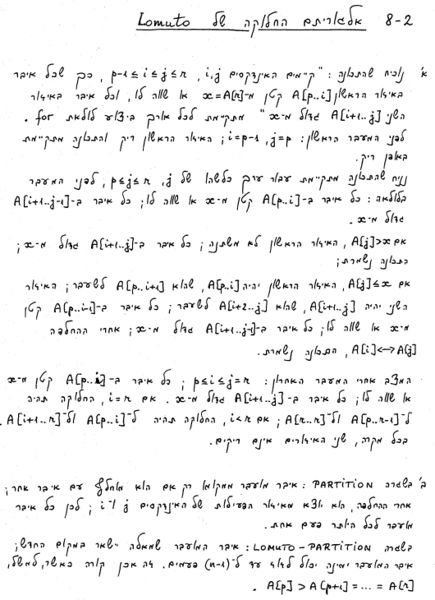 8-2 אלגוריתם החלוקה של Lomuto
א נוכיח שהתכונה: "קיימים האינדקסים i, j, p-1≤i≤j≤r, כך שכל איבר
באיזור הראשון A[p..i] קטן מ-x=A[r] או שווה לו, וכל איבר באיזור
השני A[i+1..j] גדול מ-x" מתקיימת לכל אורך ביצוע לולאת for.
לפני המעבר הראשון: i=p-1, j=p; האיזור הראשון ריק והתכונה מתקיימת
באופן ריק.
נניח שהתכונה מתקיימת עבור ערך כלשהו של j, p≤j≤r, לפני המעבר
בלולאה: כל איבר ב-A[p..i] קטן מ-x או שווה לו; כל איבר ב-A[i+1..j-1]
גדול מ-x.
אם A[j]>x, האיזור הראשון לא משתנה; כל איבר ב-A[i+1..j] גדול מ-x;
התכונה נשמרת;
אם A[j]≤x, האיזור הראשון יהיה A[p..i], שהוא A[p..i+1] לשעבר; האיזור
השני יהיה A[i+1..j], שהוא A[i+2..j] לשעבר; כל איבר ב-A[p..i-1] קטן
מ-x או שווה לו; כל איבר ב-A[i+1..j-1] גדול מ-x; אחרי ההחלפה
A[i]↔A[j], התכונה נשמרת.
המצב אחרי המעבר האחרון: p≤i≤j=r; כל איבר ב-A[p..i] קטן מ-x
או שווה לו; כל איבר ב-A[i+1..j] גדול מ-x. אם i=r, החלוקה תהיה
ל-A[p..r-1] ול-A[r..r]; אם i<r, החלוקה תהיה ל-A[p..i] ול-A[i+1..r].
בכל מקרה, שני האיזורים אינם ריקים.
ב בשגרה PARTITION: איבר מועבר ממקומו רק אם הוא מוחלף עם איבר אחר;
אחרי ההחלפה, הוא יוצא מאיזור הפעילות של האינדקסים i ו-j; לכן כל איבר
מועבר לכל היותר פעם אחת.
בשגרה LOMUTO-PARTITION: איבר המועבר שמאלה ישאר במקום החדש;
איבר המועבר ימינה יכול לזוז עד ל-(n-1) פעמים. זה אכן קורה כאשר, למשל,
A[p] > A[p+1] = ... = A[r].